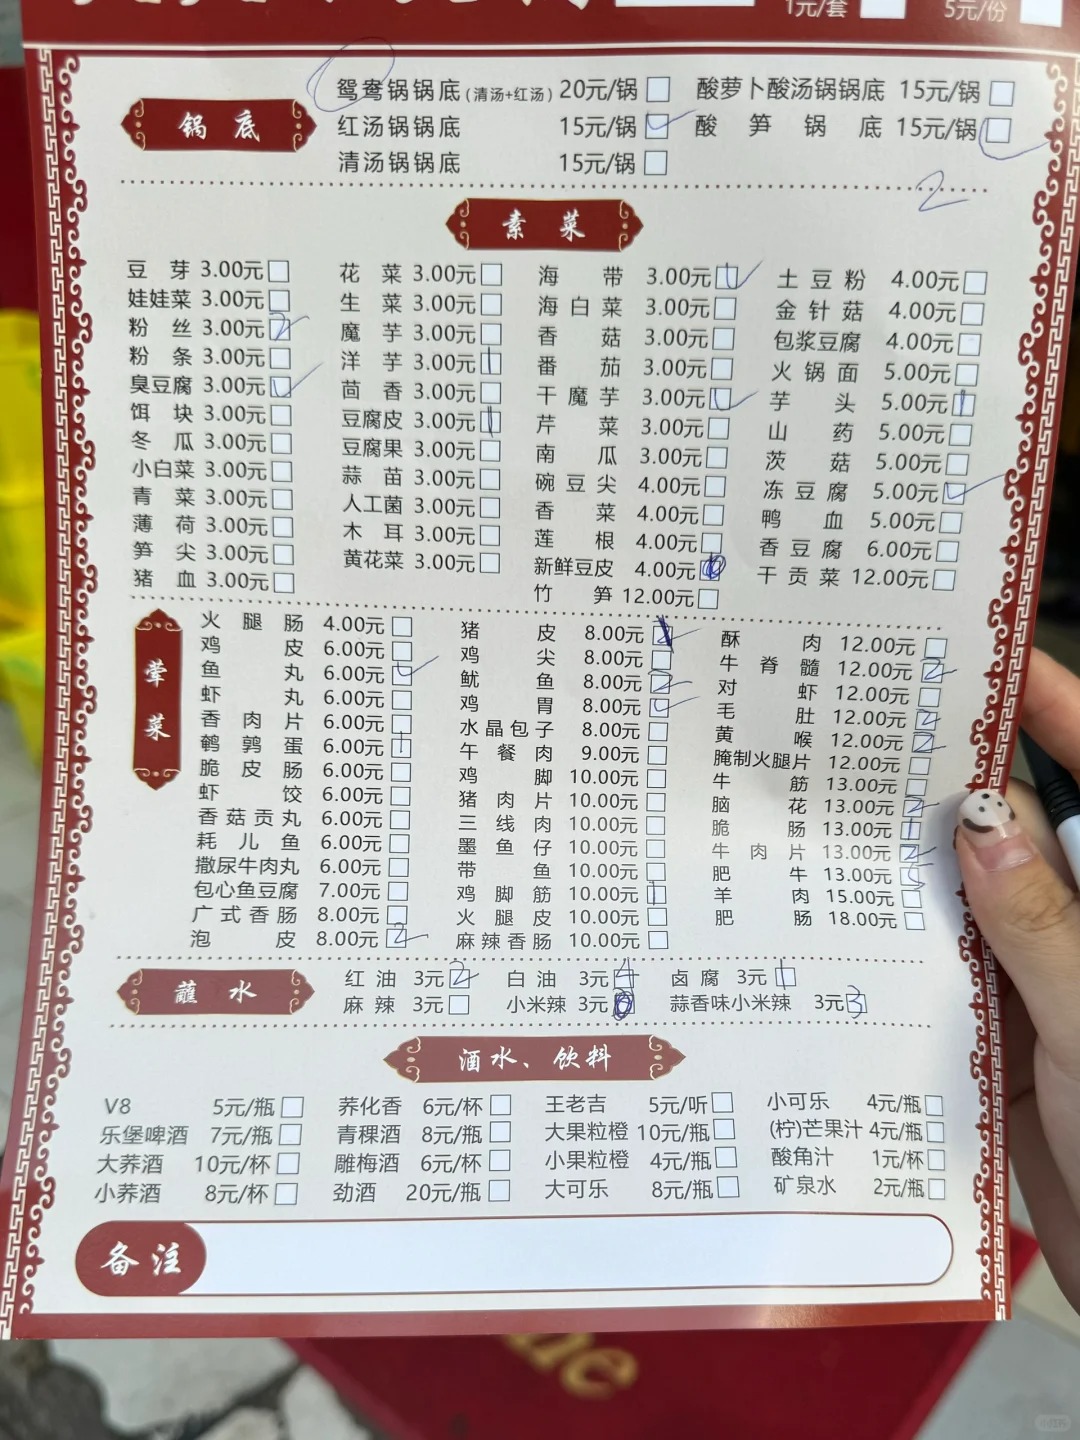 1元/套 5元/份
锅底
鸳鸯锅锅底(清汤+红汤) 20元/锅 酸萝卜酸汤锅锅底 15元/锅
红汤锅锅底 15元/锅 酸笋锅底 15元/锅
清汤锅锅底 15元/锅
2
素菜
豆芽 3.00元 花菜 3.00元 海带 3.00元 土豆粉 4.00元
娃娃菜 3.00元 生菜 3.00元 海白菜 3.00元 金针菇 4.00元
粉丝 3.00元 2 魔芋 3.00元 香菇 3.00元 包浆豆腐 4.00元
粉条 3.00元 洋芋 3.00元 1 番茄 3.00元 火锅面 5.00元
臭豆腐 3.00元 茴香 3.00元 干魔芋 3.00元 芋头 5.00元 1
饵块 3.00元 豆腐皮 3.00元 1 芹菜 3.00元 山药 5.00元
冬瓜 3.00元 豆腐果 3.00元 南瓜 3.00元 茨菇 5.00元
小白菜 3.00元 蒜苗 3.00元 碗豆尖 4.00元 冻豆腐 5.00元
青菜 3.00元 人工菌 3.00元 香菜 4.00元 鸭血 5.00元
薄荷 3.00元 木耳 3.00元 莲根 4.00元 香豆腐 6.00元
笋尖 3.00元 黄花菜 3.00元 新鲜豆皮 4.00元 干贡菜 12.00元
猪血 3.00元 竹笋 12.00元
荤菜
火腿肠 4.00元 猪皮 8.00元 酥肉 12.00元
鸡皮 6.00元 鸡尖 8.00元 牛脊髓 12.00元 2
鱼丸 6.00元 鱿鱼 8.00元 2 对虾 12.00元
虾丸 6.00元 鸡胃 8.00元 毛肚 12.00元 2
香肉片 6.00元 水晶包子 8.00元 黄喉 12.00元 2
鹌鹑蛋 6.00元 1 午餐肉 9.00元 腌制火腿片 12.00元
脆皮肠 6.00元 鸡脚 10.00元 牛筋 13.00元
虾饺 6.00元 猪肉片 10.00元 脑花 13.00元 2
香菇贡丸 6.00元 三线肉 10.00元 脆肠 13.00元 1
耗儿鱼 6.00元 墨鱼仔 10.00元 牛肉片 13.00元 2
撒尿牛肉丸 6.00元 带鱼 10.00元 肥牛 13.00元
包心鱼豆腐 7.00元 鸡脚筋 10.00元 1 羊肉 15.00元
广式香肠 8.00元 火腿皮 10.00元 肥肠 18.00元
泡皮 8.00元 2 麻辣香肠 10.00元
蘸水
红油 3元 2 白油 3元 4 卤腐 3元 1
麻辣 3元 小米辣 3元 蒜香味小米辣 3元 3
酒水、饮料
V8 5元/瓶 荞化香 6元/杯 王老吉 5元/听 小可乐 4元/瓶
乐堡啤酒 7元/瓶 青稞酒 8元/瓶 大果粒橙 10元/瓶 (柠)芒果汁 4元/瓶
大荞酒 10元/杯 雕梅酒 6元/杯 小果粒橙 4元/瓶 酸角汁 1元/杯
小荞酒 8元/杯 劲酒 20元/瓶 大可乐 8元/瓶 矿泉水 2元/瓶
备注